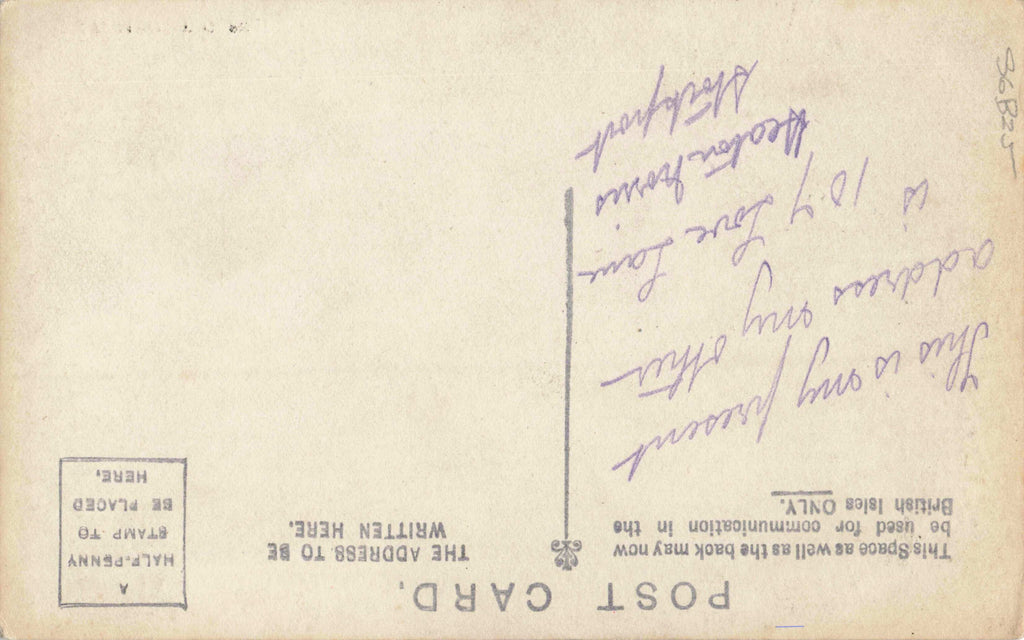 POST CARD.
This Space as well as the back may now
be used for communication in the
British Isles ONLY.
THE ADDRESS TO BE
WRITTEN HERE.
A
HALF-PENNY
STAMP TO
BE PLACED
HERE.
This is my present
address my other
is 107 Love Lane
Heaton Norris
Stockport
36B25